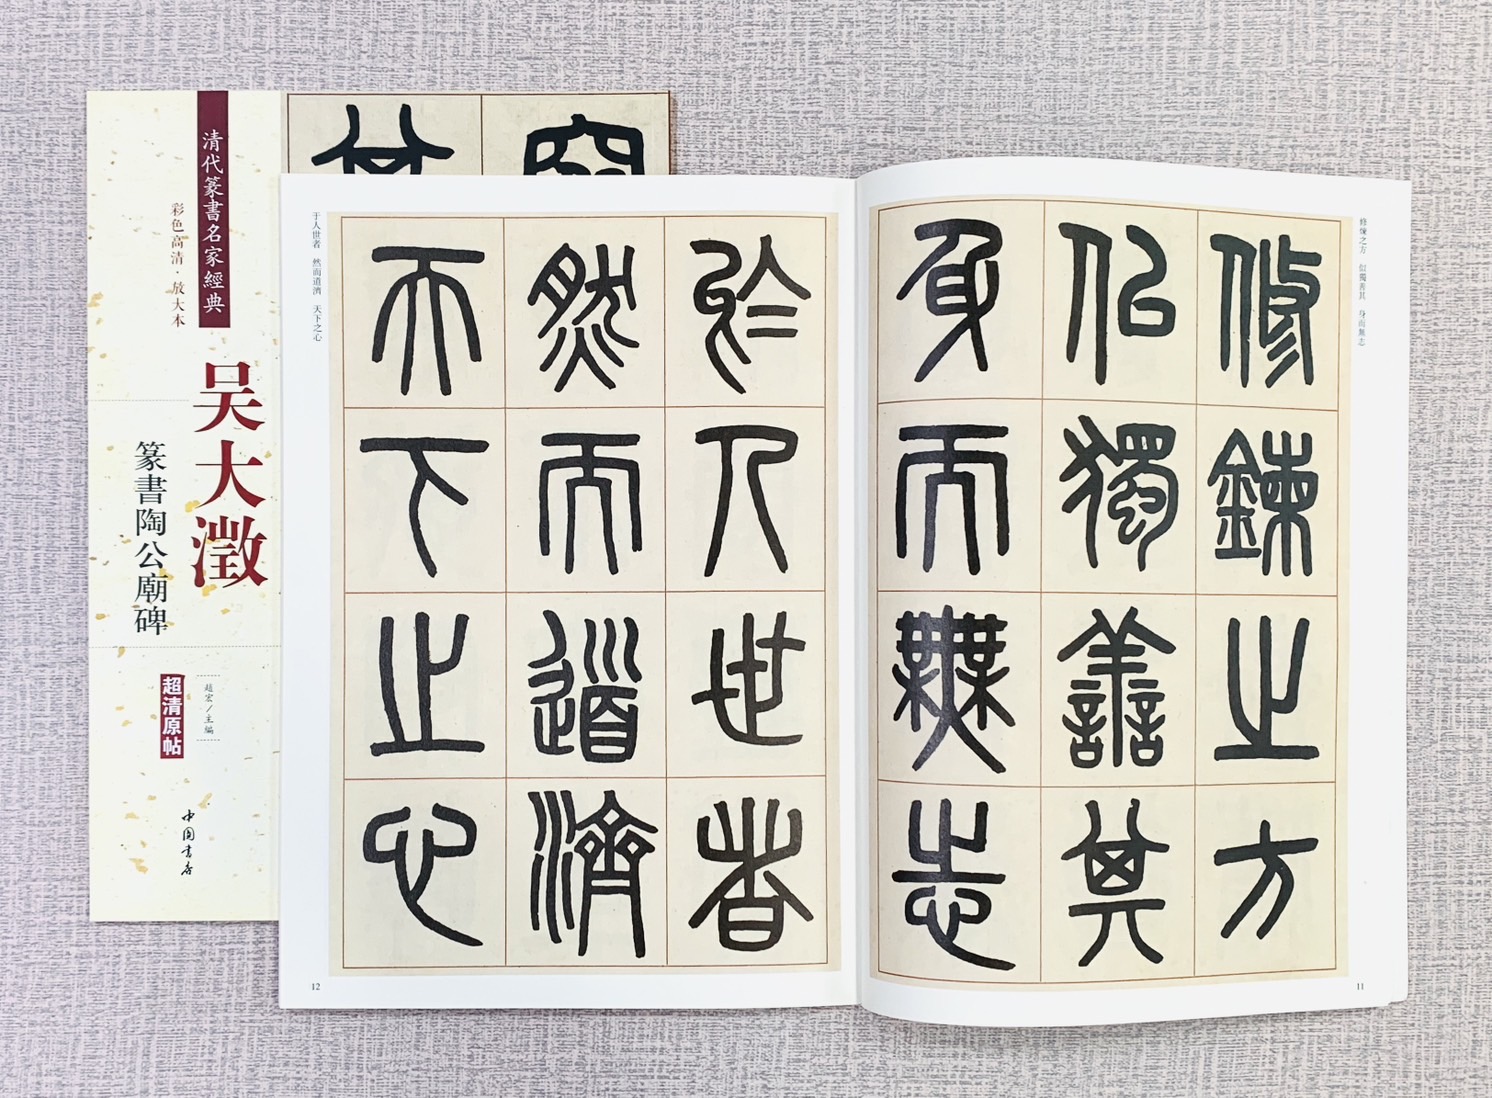 清代篆書名家經典
彩色高清·放大本
吴大澂
篆書陶公廟碑
趙宏/主編
超清原帖
中国書店
修煉之方 佀獨善其 身而無志
修鍊之方
佀獨善其
身而無志
11
於人世者
然而道濟
天下之心
于人世者 然而道濟 天下之心
12